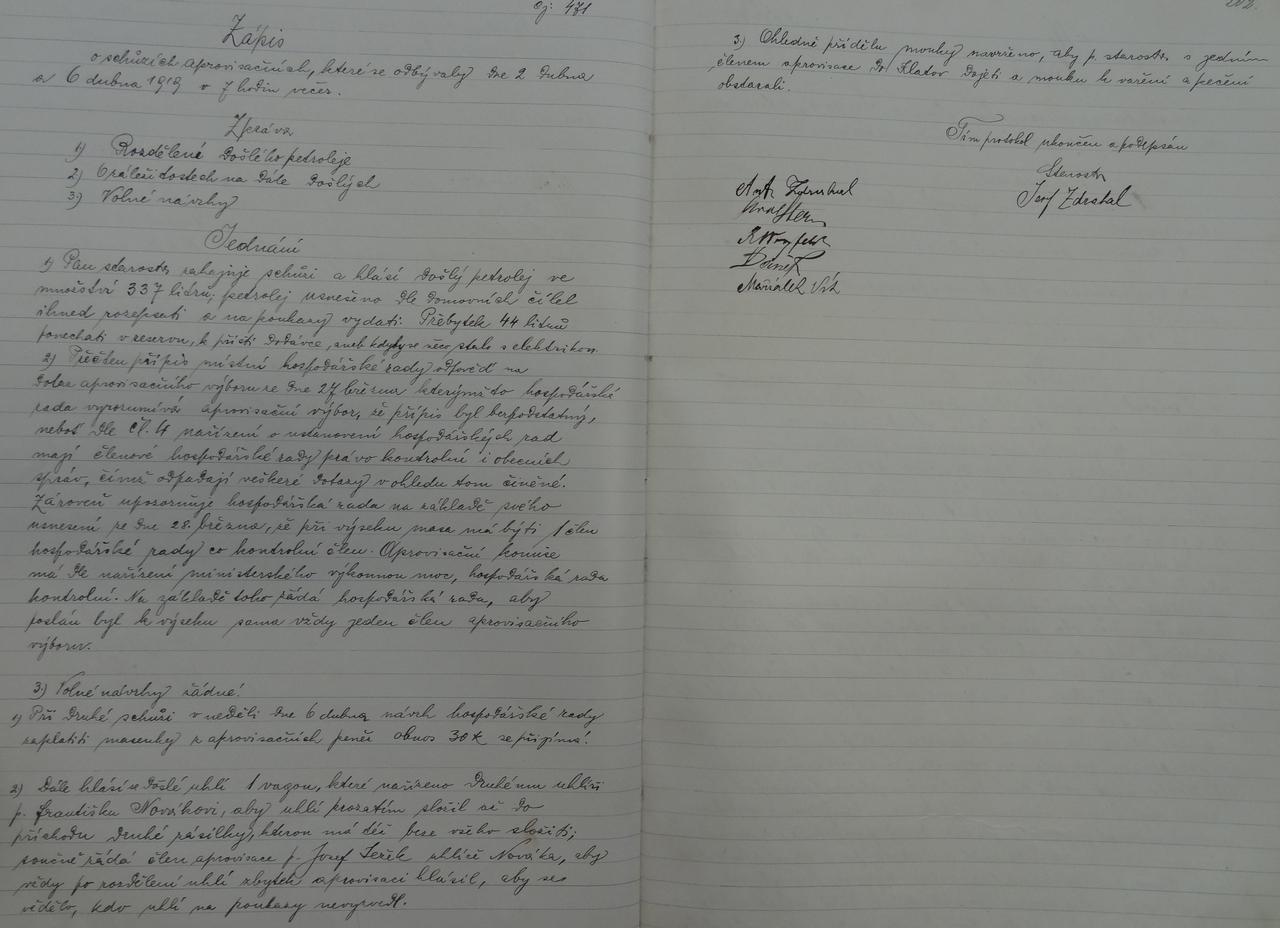 Čj: 471
Zápis
o schůzích aprovisačních, které se odbývaly dne 2 dubna
a 6 dubna 1919 v 7 hodin večer.
Zpráva
1) Rozdělení došlého petroleje
2) O záležitostech na dále došlých
3) Volné návrhy
Jednání
1) Pan starosta zahajuje schůzi a hlásí došlý petrolej ve
množství 337 litrů; petrolej usneseno dle domovních čísel
ihned rozepsati a na poukazy vydati. Přebytek 44 litrů
ponechati v reservu, k příští dodávce, aneb kdyby se něco stalo s elektrikou.
2) Přečten přípis místní hospodářské rady odpověď na
dotaz aprovisačního výboru ze dne 27 března kterýmžto hospodářská
rada vyrozumívá aprovisační výbor, že přípis byl bezpodstatný,
neboť dle čl. 4 nařízení o ustanovení hospodářských rad
mají členové hospodářské rady právo kontrolní i obecních
správ, čímž odpadají veškeré dotazy v ohledu tom činěné.
Zároveň upozorňuje hospodářská rada na základě svého
usnesení ze dne 28. března, že při výseku masa má býti 1 člen
hospodářské rady co kontrolní člen. Aprovisační komise
má dle nařízení ministerského výkonnou moc, hospodářská rada
kontrolní. Na základě toho žádá hospodářská rada, aby
poslán byl k výseku sama vždy jeden člen aprovisačního
výboru.
3) Volné návrhy žádné!
1) Při druhé schůzi v neděli dne 6 dubna návrh hospodářské rady
zaplatiti masenky z aprovisačních peněz obnos 30 K se přijímá!
2) Dále hlásí se došlé uhlí 1 vagon, které nařízeno druhému uhlíři
p. Františku Novákovi, aby uhlí prozatím složil až do
příchodu druhé zásilky, kterou má též beze všeho složiti;
současně žádá člen aprovisace p. Josef Ježek uhlíře Nováka, aby
vždy po rozdělení uhlí zbytek aprovisaci hlásil, aby se
vědělo, kdo uhlí na poukazy nevyzvedl.
3) Ohledně přídělu mouky navrženo, aby p. starosta s jedním
členem aprovisace do Klatov dojeti a mouku k vaření a pečení
obstarali.
Tím protokol ukončen a podepsán
Starosta
Josef Zdrstal
Ant.
Stern